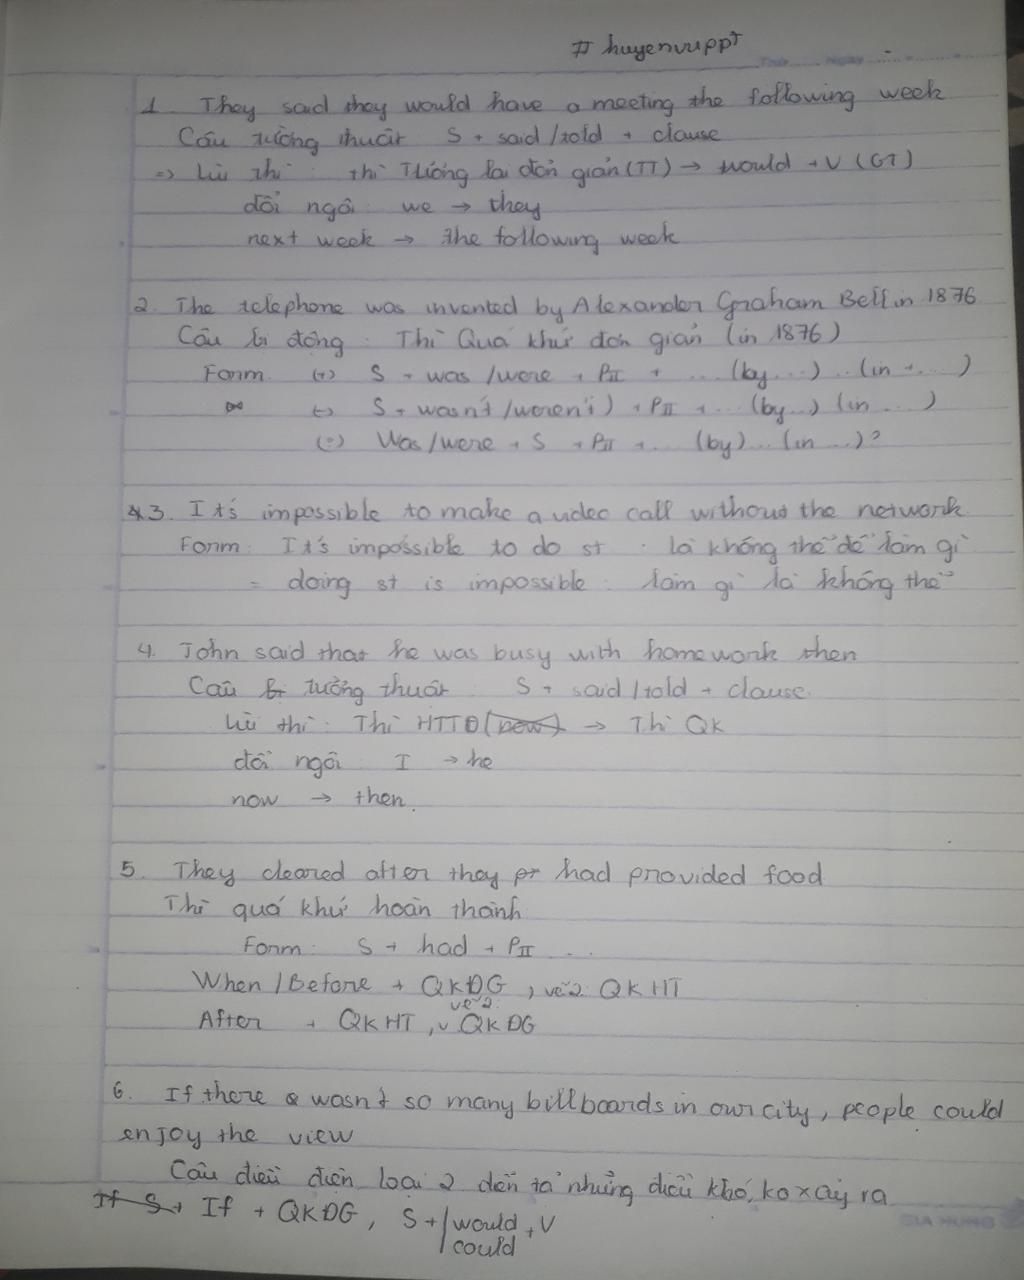 # huyenvuppt
Thứ Ngày
1. They said they would have a meeting the following week
Câu tường thuật S + said/told + clause
=> Lùi thì : thì Tương lai đơn giản (TT) → would + V (GT)
đổi ngôi: we → they
next week → the following week
2. The telephone was invented by Alexander Graham Bell in 1876
Câu bị động : Thì Quá khứ đơn giản (in 1876)
Form (+) S + was/were + PII + ... (by ...) .. (in ....)
(-) S + wasn't/weren't) + PII + ... (by...) (in ...)
(?) Was/were + S + PII + ... (by)... (in ...)?
3. It's impossible to make a video call without the network
Form: It's impossible to do st : là không thể để làm gì
= doing st is impossible : làm gì là không thể
4. John said that he was busy with homework then
Câu tường thuật : S + said/told + clause.
Lùi thì : Thì HTTD (now) → Thì QK
đổi ngôi I → he
now → then.
5. They cleared after they pr had provided food
Thì quá khứ hoàn thành
Form: S + had + PII ...
When/Before + QKĐG , vế 2: QKHT
vế 2:
After + QKHT , v QKĐG
6. If there a wasn't so many billboards in our city, people could
enjoy the view
Câu điều điện loại 2 diễn tả những điều khó, ko xảy ra
If S + If + QKĐG, S + / would + V
could
GIA HUNG